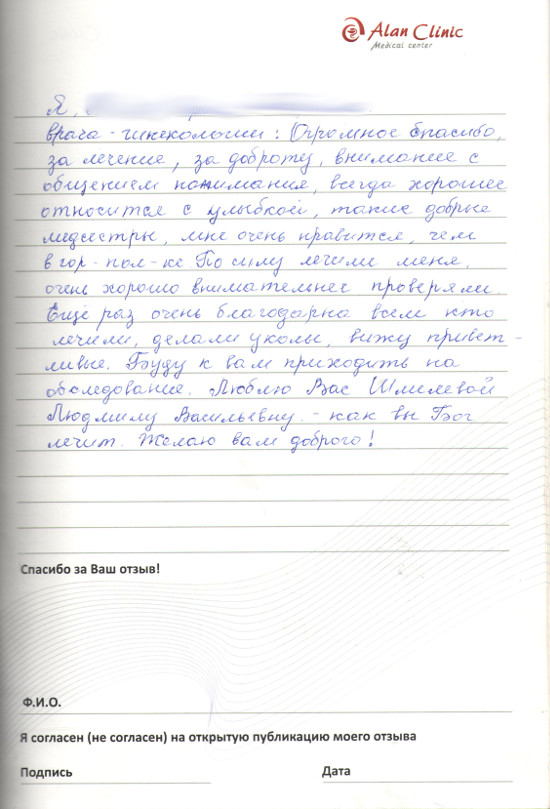 Alan Clinic
Medical center
Я,
врача - гинекологии: Огромное Спасибо,
за лечение, за доброту, внимание с
общением понимания, всегда хорошее
относится с улыбкой, такие добрые
медсестры, мне очень нравится, чем
в гор-пол-ке По силу лечили меня,
очень хорошо внимательнее проверяли.
Еще раз очень благодарна всем кто
лечили, делали уколы, вижу привет-
ливые. Буду к вам приходить на
обследование. Люблю Вас
Людмилу Васильевну - как вы Бог
лечит. Желаю вам доброго!
Спасибо за Ваш отзыв!
Ф.И.О.
Я согласен (не согласен) на открытую публикацию моего отзыва
Подпись
Дата